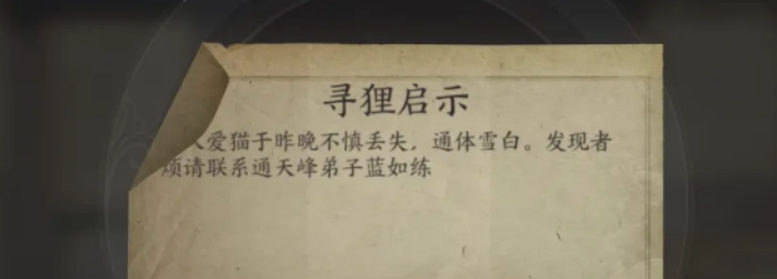 寻狸启示
人爱猫于昨晚不慎丢失，通体雪白。发现者
烦请联系通天峰弟子蓝如练